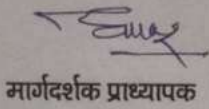 मार्गदर्शक प्राध्यापक